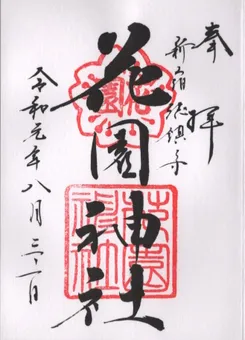 奉拝
新宿総鎮守
花園神社
令和元年八月三十一日
花園神社